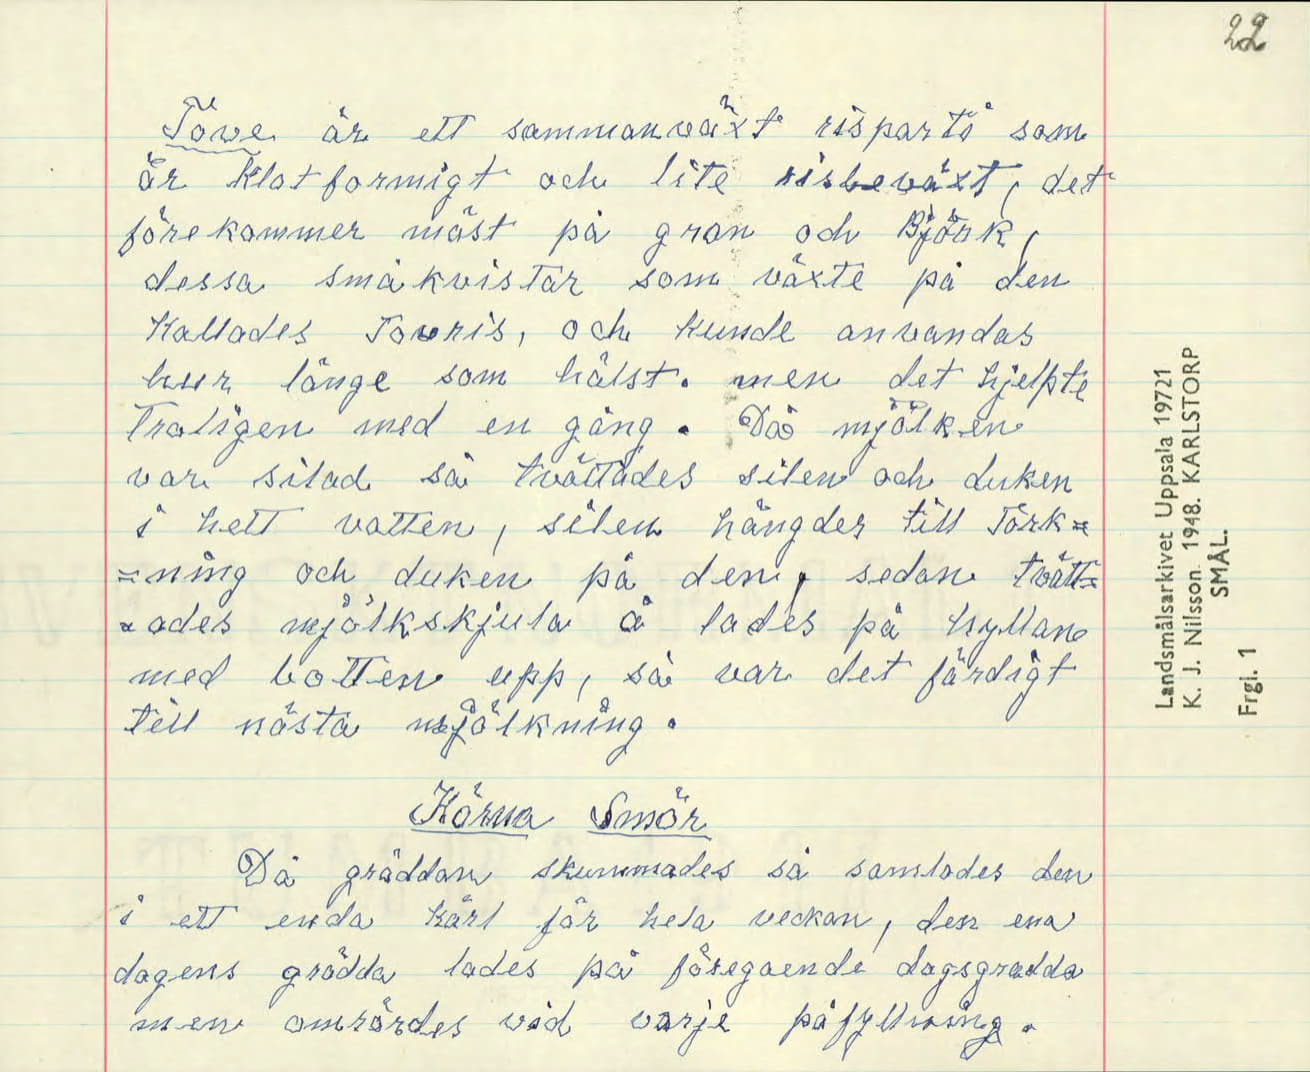 22
Tove är ett sammanväxt risparti som
är Klotformigt och lite risbeväxt, det
förekommer mäst på gran och Björk,
dessa småkvistar som växte på den
Kallades Tovris, och kunde anvandas
hur länge som hälst. men det hjelpte
Troligen med en gång. Då mjölken
var silad så tvättades silen och duken
i hett vatten, silen hängdes till Tork=
=ning och duken på den, sedan tvätt=
=ades mjölkskjula å lades på hyllan
med botten upp, så var det färdigt
till nästa mjölkning.
Kärna Smör
Då gräddan skummades så samlades den
i ett enda kärl för hela veckan, den ena
dagens grädda lades på föregaende dagsgradda
men omrördes vid varje påfyllning.
Landsmålsarkivet Uppsala 19721
K. J. Nilsson. 1948. KARLSTORP
SMÅL.
Frgl. 1